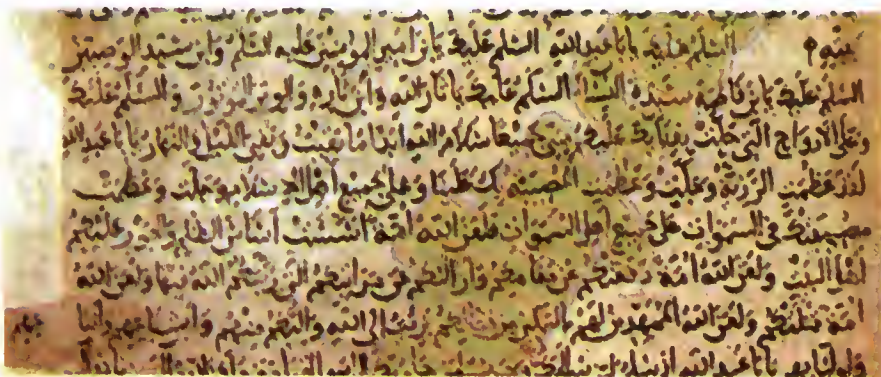 السلم عليك يا با عبد الله السلم عليك يا بن امير المومنين عليه السلم وابن سيد الوصيين
السلم عليك يا بن فاطمة سيدة النساء السلم عليك يا ثار الله وابن ثاره والوتر الموتور والسلم عليك
وعلى الارواح التي حلت بفنائك عليكم مني جميعا سلام الله ابدا ما بقيت وبقي الليل والنهار يا با عبد الله
لقد عظمت الرزية وجلت وعظمت المصيبة بك علينا وعلى جميع اهل الاسلام وجلت وعظمت
مصيبتك في السموات على جميع اهل السموات فلعن الله امة اسست اساس الظلم والجور عليكم
اهل البيت ولعن الله امة دفعتكم عن مقامكم وازالتكم عن مراتبكم التي رتبكم الله فيها ولعن الله
امة قتلتكم ولعن الله الممهدين لهم بالتمكين من قتالكم برئت الى الله واليكم منهم واشياعهم واتبا عهم
واوليايهم يا با عبد الله اني سلم لمن سالمكم